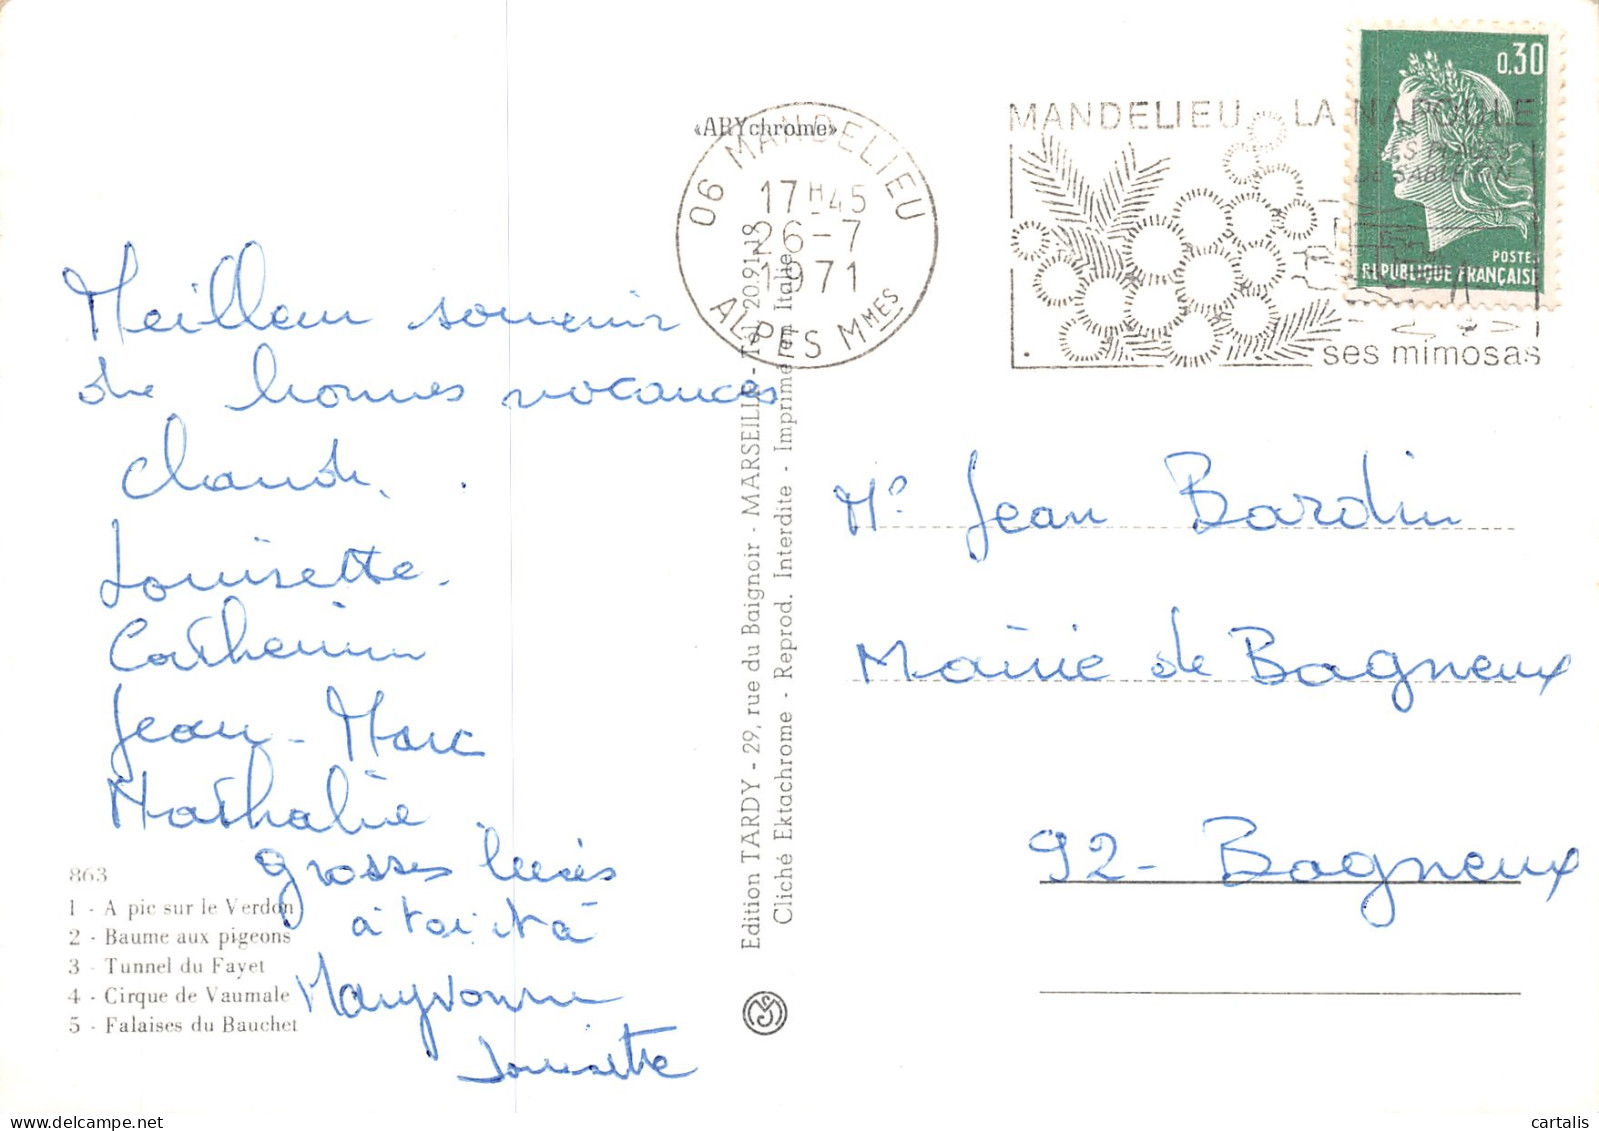 «ARYchrome»
06 MANDELIEU
17H45
26-7
1971
ALPES MMES
MANDELIEU LA NAPOULE
SES PLAGES
DE SABLE FIN
ses mimosas
0,30
POSTES
REPUBLIQUE FRANÇAISE
Meilleur souvenir
de bonnes vacances
Claude.
Louisette.
Catherine
Jean-Marc
Nathalie.
grosses bises
à toi et à
Maryvonne
Louisette
863
1 - A pic sur le Verdon
2 - Baume aux pigeons
3 - Tunnel du Fayet
4 - Cirque de Vaumale
5 - Falaises du Bauchet
Edition TARDY - 29, rue du Baignoir - MARSEILLE - Tél. 20.91.18
Cliché Ektachrome - Reprod. Interdite - Imprimé en Italie
Mr Jean Bardin
Mairie de Bagneux
92 - Bagneux
cartalis